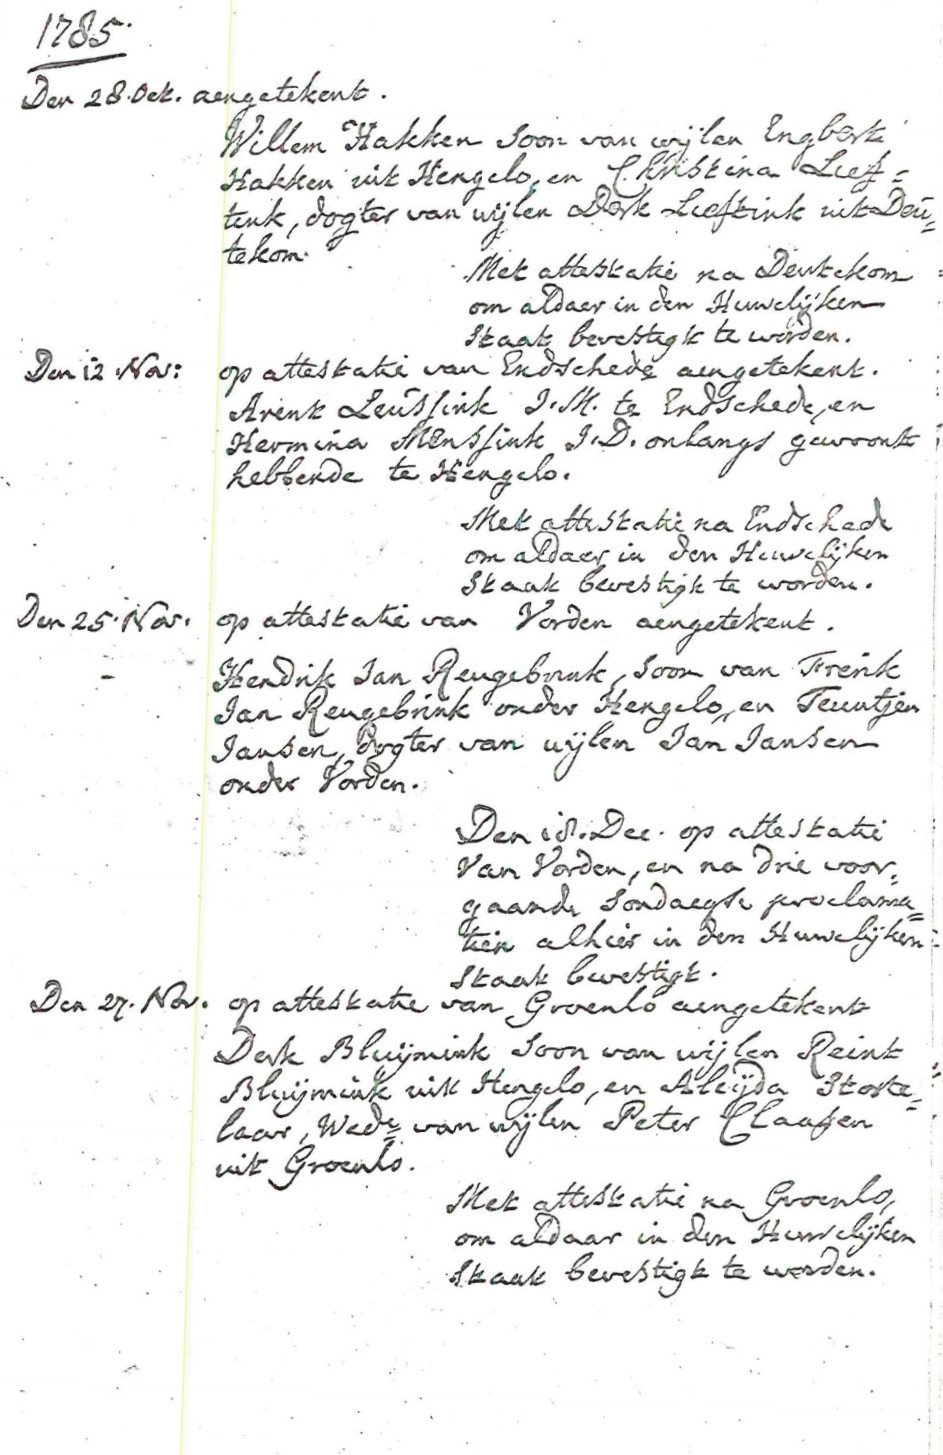 1785.
Den 28. Oct. aengetekent.
Willem Hakken Soon van wijlen Engbert
Hakken uit Hengelo, en Christina Lief=
tenk, dogter van wijlen Derk Lieftink uit Deü=
tekom.
Met attestatie na Deutekom
om aldaer in den Huwelijken
Staat bevestigt te worden.
Den 12 Nov: op attestatie van Endschede aengetekent.
Arent Leussink J.M. te Endschede, en
Hermina Menssink J.D. onlangs gewoont
hebbende te Hengelo.
Met attestatie na Endschede
om aldaer in den Huwelijken
Staat bevestigt te worden.
Den 25. Nov. op attestatie van Vorden aengetekent.
Hendrik Jan Reugebrink, Soon van Frerik
Jan Reugebrink onder Hengelo, en Teuntjen
Jansen, dogter van wijlen Jan Jansen
onder Vorden.
Den 18. Dec. op attestatie
van Vorden, en na drie voor=
gaande Sondaegse proclama=
tien alhier in den Huwelijken
Staat bevestigt.
Den 27. Nov. op attestatie van Groenlo aengetekent
Derk Bluijmink Soon van wijlen Reint
Bluijmink uit Hengelo, en Aleijda Storte=
laar, Wede= van wijlen Peter Claasen
uit Groenlo.
Met attestatie na Groenlo,
om aldaar in den Huwelijken
Staat bevestigt te worden.